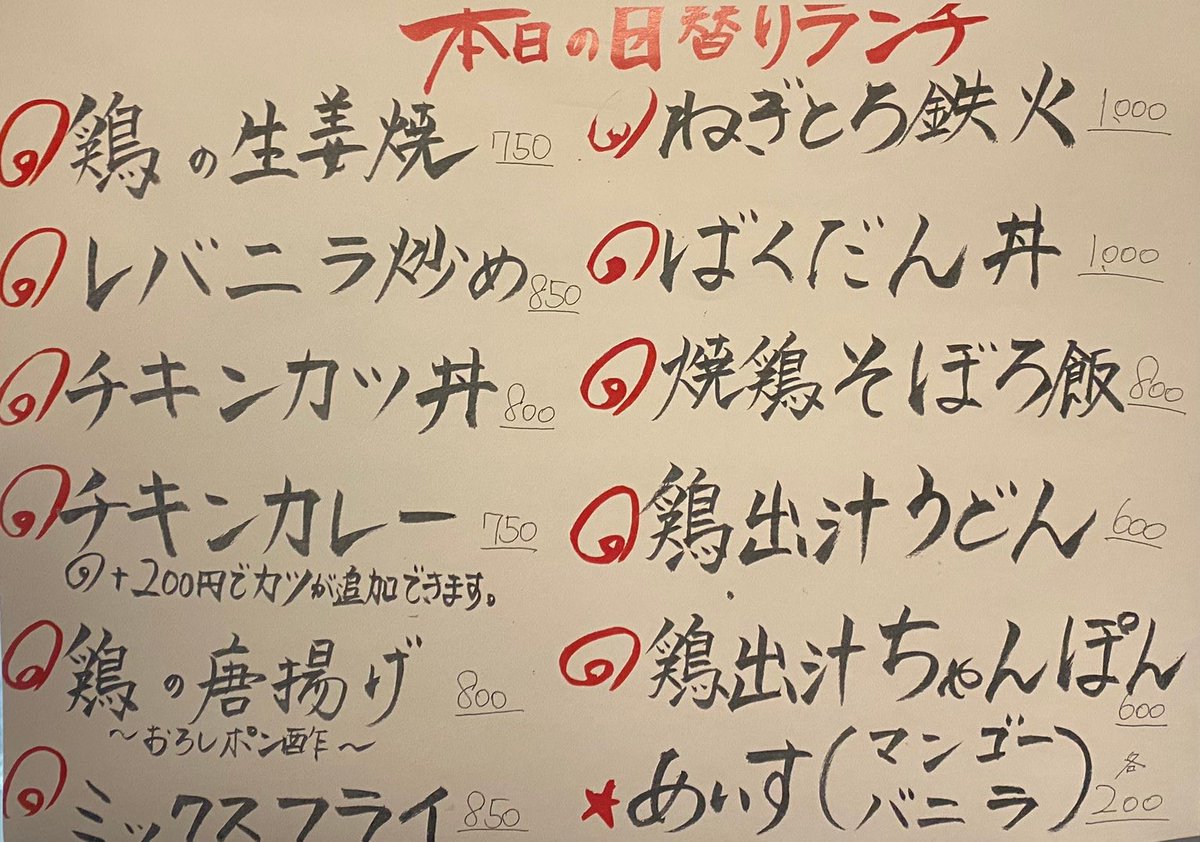 本日の日替りランチ
鶏の生姜焼 750
レバニラ炒め 850
チキンカツ丼 800
チキンカレー 750
+200円でカツが追加できます。
鶏の唐揚げ 800
〜おろしポン酢〜
ミックスフライ 850
ねぎとろ鉄火 1,000
ばくだん丼 1,000
焼鶏そぼろ飯 800
鶏出汁うどん 600
鶏出汁ちゃんぽん 600
★あいす(マンゴー バニラ) 各200